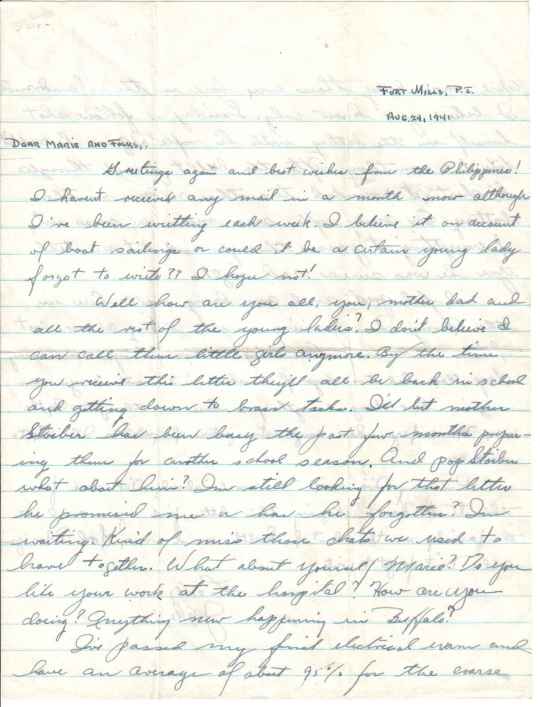 FORT MILLS, P.I.
AUG. 24, 1941
DEAR MARIE AND FOLKS,.
Greetings again and best wishes from the Philippines!
I havent received any mail in a month now although
I've been writting each week. I believe it on account
of boat sailings or could it be a certain young lady
forgot to write?? I hope not!
Well how are you all, you, mother dad and
all the rest of the young ladies? I don't believe I
can call them little girls anymore. By the time
you receive this letter they'll all be back in school
and getting down to brain tasks. I'll bet mother
Stoiber has been busy the past few months prepar-
ing them for another school season. And pop Stoiber
what about him? I'm still looking for that letter
he promised me or has he forgotten? I'm
waiting. Kind of miss those chats we used to
have together. What about yourself Marie? Do you
like your work at the hospital? How are you
doing? Anything new happening in Buffalo?
I've passed my final electrical exam and
have an average of about 95% for the course